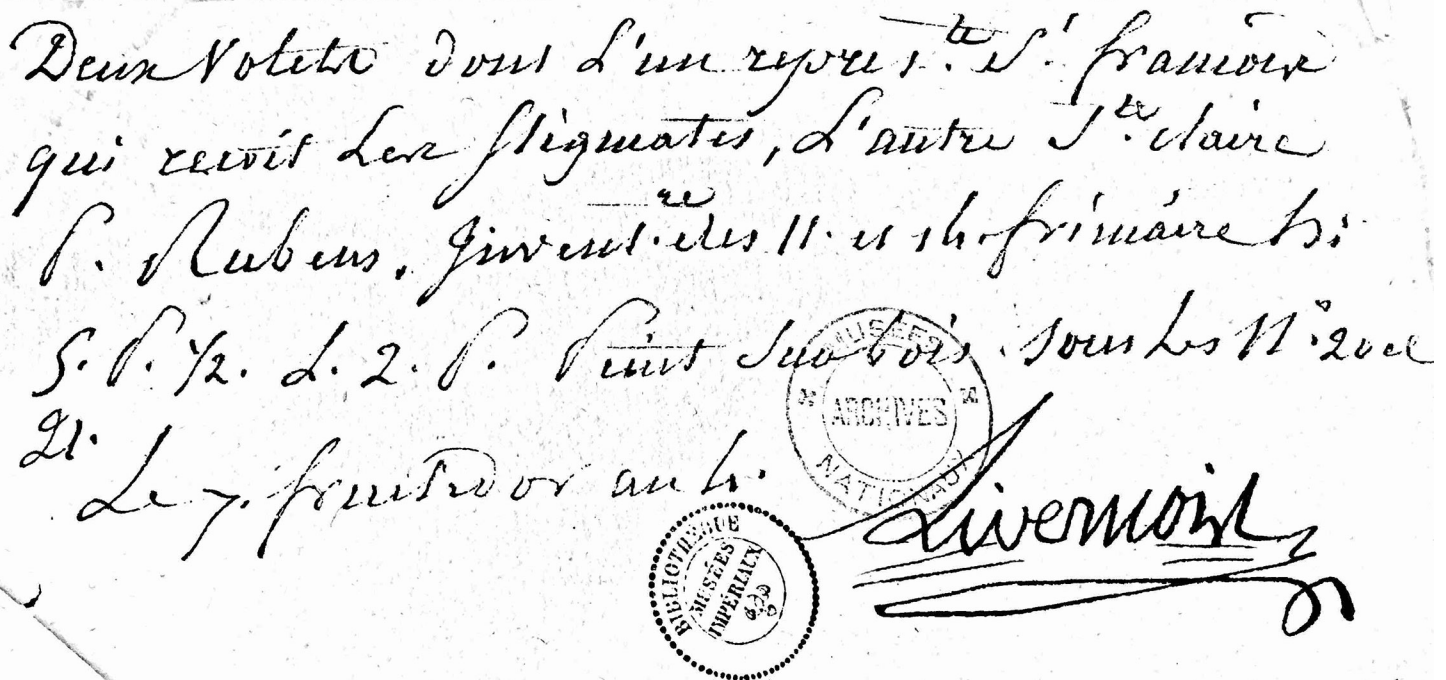 Deux Volets dont L'un repres.te St. françois
qui reçoit Les Stigmates, L'autre Ste. claire
P. Rubens. Invent.re des 11. et 14. frimaire h:
5. P. 1/2. L. 2. P. Peint Sur bois. sous Les N.os 20 et
21.
Le 7. fructidor an 4.
Livernois
MUSÉES NATIONAUX
ARCHIVES
BIBLIOTHEQUE
MUSÉES
IMPÉRIAUX